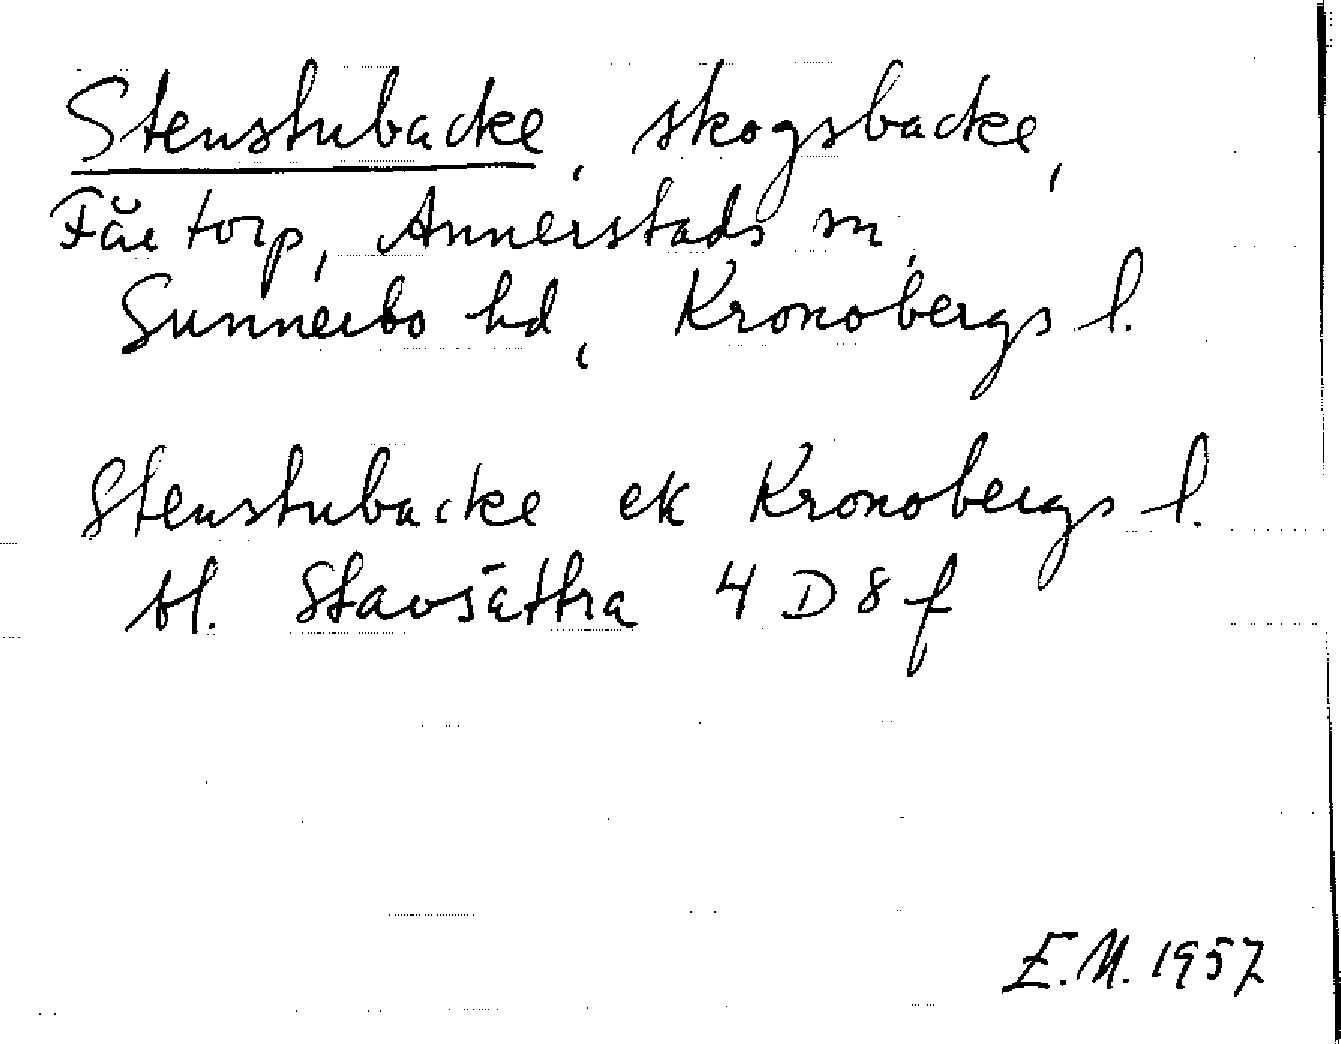 Stenstubacke, skogsbacke,
Fåretorp, Annerstads sn,
Sunnerbo hd, Kronobergs l.
Stenstubacke ek Kronobergs l.
bl. Stavsätra 4 D 8 f
E.M. 1957